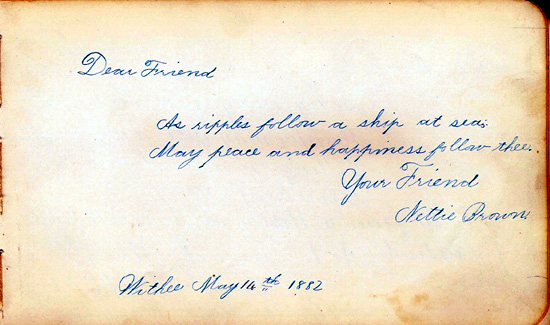 Dear Friend
As ripples follow a ship at sea;
May peace and happiness follow thee.
Your Friend
Nettie Brown
Withee May 14th 1882